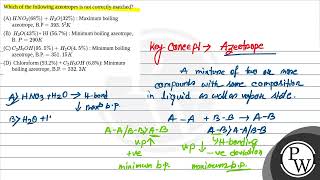 Which of the following azeotropes is not correctly matched?
(A) HNO₃(68%) + H₂O(32%) : Maximum boiling
azeotrope, B.P = 393.5K
(B) H₂O(43%)+ HI (56.7%) : Minimum boiling azeotrope,
B.P = 290K
(C) C₂H₅OH(95.5%) + H₂O(4.5%) : Minimum boiling
azeotrope, B.P = 351.15K
(D) Chloroform (93.2%) + C₂H₅OH (6.8%): Minimum
boiling azeotrope, B.P. = 332.3K
Key Concept → Azeotrope
A mixture of two or more
compounds with same composition
in liquid as well as vapour state.
A) HNO₃ + H₂O → H-bond
↳ max b.p.
B) H₂O +
A-A + B-B → A-B
A-A/B-B > A-B
A-B > A-A, B-B
V.P ↑
+ve
minimum b.p.
V.P ↓ H-bonding
-ve deviation
maximum b.p.
PW